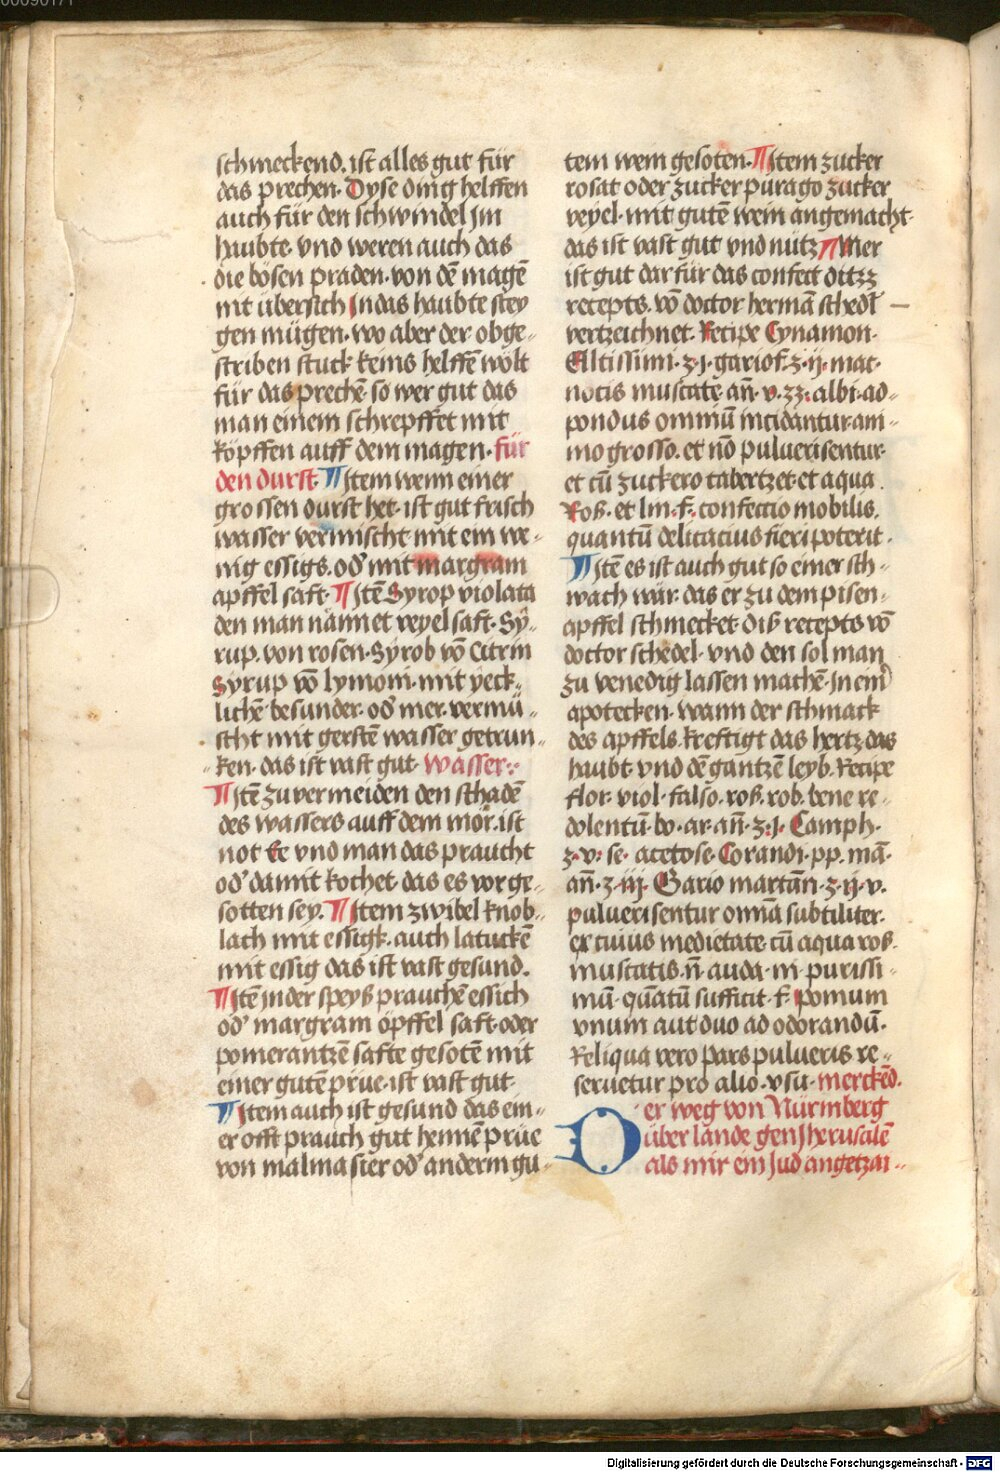 schmeckend. ist alles gut für
das prechen. Dyse ding helffen
auch für den schwindel jm
haubte. vnd weren auch das
die bösen praden. von dē magē
nit übersich In das haubte stey
gen mügen. wo aber der obge-
striben stuck keins helffē wölt
für das prechē so wer gut das
man einem schrepffet mit
köpffen auff dem magen. für
den durst. ¶ Jtem wenn einer
grossen durst het. ist gut frisch
wasser vermischt mit ein we-
nig essigs. od' mit margram
apffel saft. ¶ Jtē Syrop violata
den man nämet veyel saft. Sy-
rup. von rosen. Syrob vō Citrin
Syrup vō lymoni. mit yeck-
lichē besunder. od' mer. vermü-
scht mit gerstē wasser getrun-
ken. das ist vast gut. wasser:
¶ Jtē zu vermeiden den schadē
des wassers auff dem mör. ist
not Ee vnd man das praucht
od' damit kochet. das es vor ge-
sotten sey. ¶ Jtem zwibel knob-
lach mit essigk. auch latuckē
mit essig das ist vast gesund.
¶ Jtē in der speyß prauchē essich
od' margram öpffel saft. oder
pomerantzē safte gesotē mit
einer gutē prüe. ist vast gut.
¶ Jtem auch ist gesund das ein-
er offt prauch gut hennē prüe
von malmasier od' anderm gu-
tem wein gesoten. ¶ Jtem zucker
rosat oder zucker purago zucker
veyel. mit gutē wein angemacht.
das ist vast gut vnd nütz ¶ Mer
ist gut dar für das confect ditzz
recepts. vō doctor hermā schedl
vertzeichnet. Recipe Cynamon.
Eltissimi. ʒ. j. gariof. ʒ. ij. mac.
nocis muscate. añ. v. ʒʒ. albi. ad-
pondus omniū incidantur. ani-
mo grosso. et nō pulverisentur.
et cū zuckero tabertzet. et aqua
Roß. et lm. f. confectio mobilis.
quantū delicacius fieri poterit.
¶ Jtē es ist auch gut so einer sch-
wach wür. das er zu dem pisen-
apffel schmecket. diß recepts vō
doctor schedel. vnd den sol man
zu venedig lassen machē. jn ein'
apotecken. wann der schmack
des apffels. kreftigt das hertz das
haubt. vnd dē gantzē leyb. Recipe
flor. viol. falso. roß. rob. bene re-
dolentū. bo. ar. añ. ʒ. j. Camph.
ʒ. v. se. acetose. Corandi. pp. mā.
añ. ʒ. iij. Gario martān. ʒ. ij. v.
pulverisentur omā subtiliter.
ex cuius medietate. cū aqua roß.
muscatis. n̄ auda. in purissi-
mū. quātū sufficit. f. pomum
vnum aut duo ad odorandū.
Reliqua vero pars pulveris re-
servetur pro alio. vsu. merckēd.
Der weg von Nürmberg
über lande gen Jherusalē
als mir ein Jud angetzai-
Digitalisierung gefördert durch die Deutsche Forschungsgemeinschaft - DFG